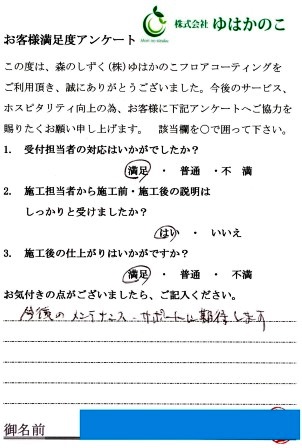 株式会社 ゆはかのこ
お客様満足度アンケート
この度は、森のしずく(株)ゆはかのこフロアコーティングを
ご利用頂き、誠にありがとうございました。今後のサービス、
ホスピタリティ向上の為、お客様に下記アンケートへご協力を
賜りたくお願い申し上げます。 該当欄を○で囲って下さい。
1. 受付担当者の対応はいかがでしたか?
満足 ・ 普通 ・不 満
2. 施工担当者から施工前・施工後の説明は
しっかりと受けましたか?
はい ・ いいえ
3. 施工後の仕上がりはいかがですか?
満足 ・ 普通 ・ 不満
お気付きの点がございましたら、ご記入ください。
今後のメンテナンス・サポートに期待します
御名前